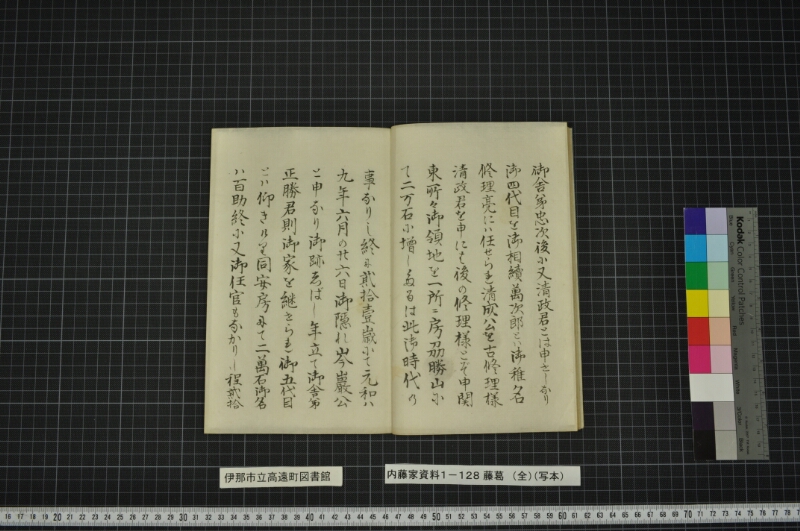 御舎弟忠次後小又清政君とは申さしなり
御四代目を御相續萬次郎とハ御稚名
修理亮にハ任せられ清成公を古修理様
清政君を申にも後の修理様とそ申関
東所々御領地を一所ニ房刕勝山に
て二万石小増しなるは此御時代の
事なりし終に貳拾壹歳にて元和ハ
九年六月の廿六日御隠れ岑巌公
と申なり御跡しばし年立て御舎弟
正勝君則御家を継きられ御五代目
とハ仰きけり同安房にて二萬石御名
ハ百助終小又御任官もなかりし程貳拾
伊那市立高遠町図書館
内藤家資料1－128 藤葛 （全）（写本）
Kodak Color Control Patches